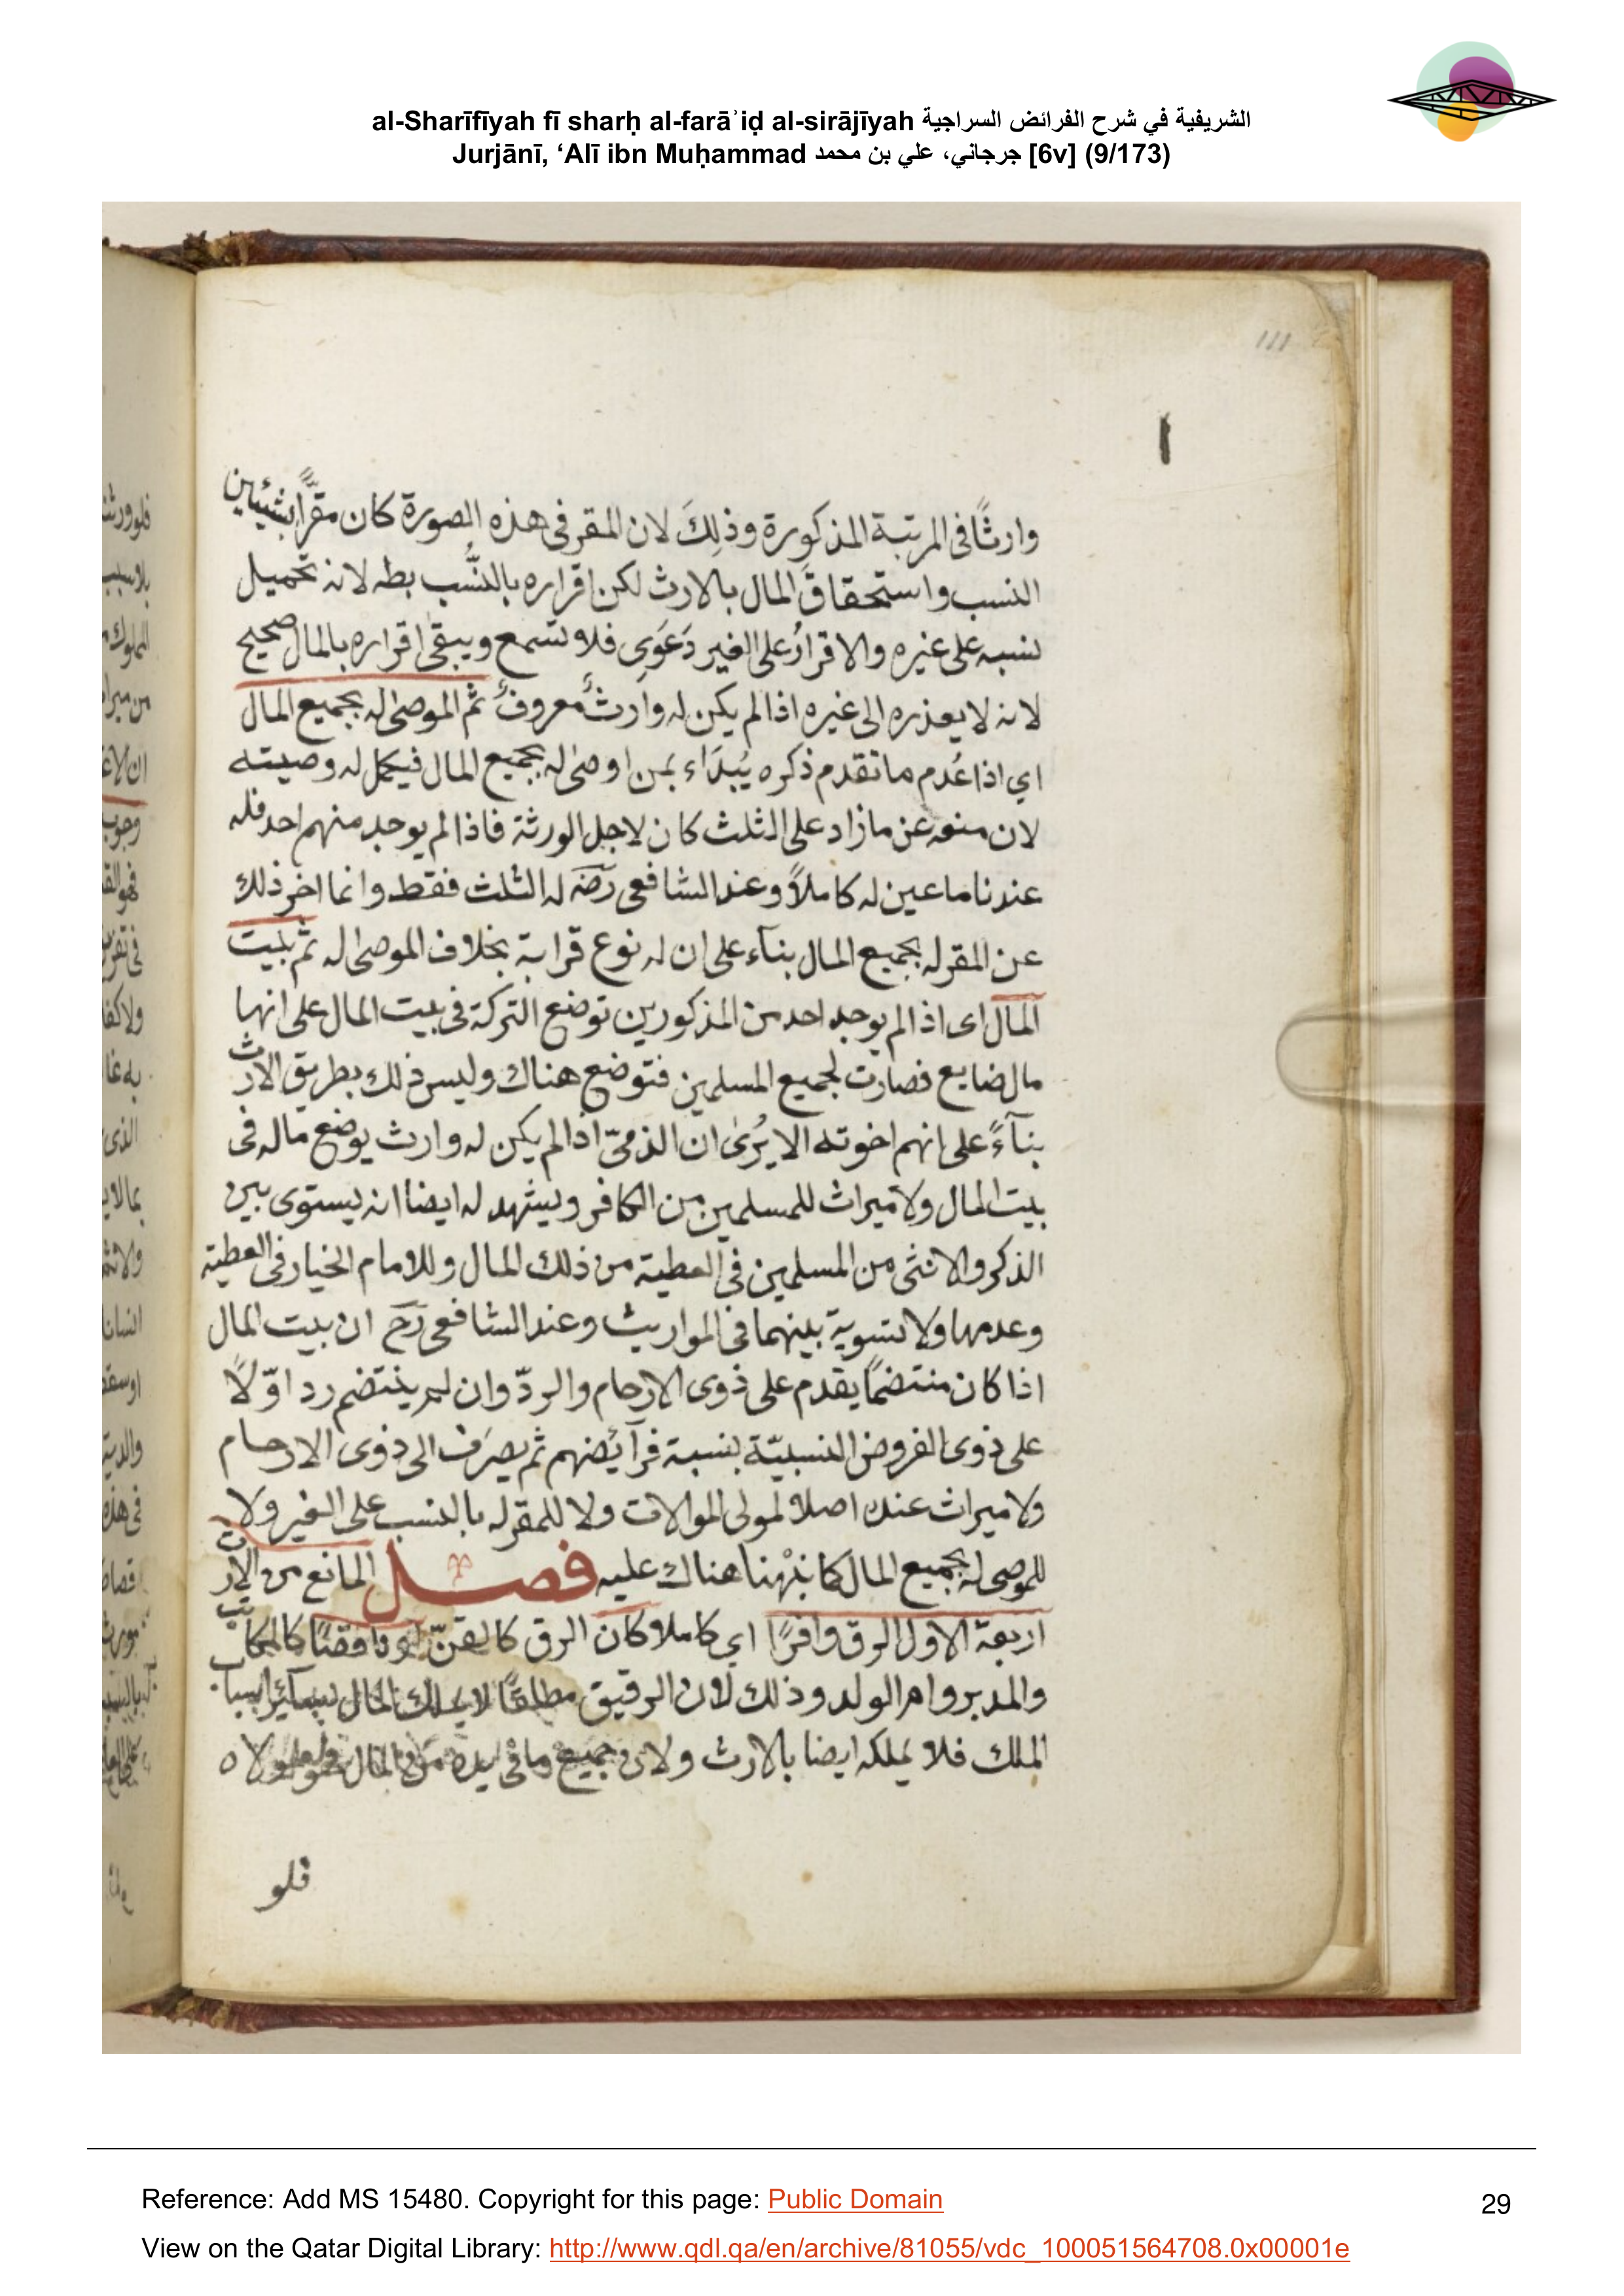 al-Sharīfīyah fī sharḥ al-farāʾiḍ al-sirājīyah الشريفية في شرح الفرائض السراجية
Jurjānī, ‘Alī ibn Muḥammad جرجاني، علي بن محمد [6v] (9/173)
111
وارثًا فى المرتبة المذكورة وذلِكَ لان المقر فى هذه الصورة كان مقرًّا بشيئين
النسب واستحقاقَ المال بالارث لكن اقراره بالنَّسب بطه لانه تحميل
نسبه على غيره والاقرارُ على الغير دَعَوى فلا تسمع ويبقى اقراره بالمال صحيح
لانه لا يعذره الى غيره اذا لم يكن له وارثٌ معروفٌ ثم الموصى له بجميع المال
اي اذا عُدم ما تقدم ذكره يُبدَاء بمن اوصى له بجميع المال فيكمل له وصيته
لان منعه عن ما زاد على الثلث كان لاجل الورثة فاذا لم يوجد منهم احد فله
عندنا ما عين له كاملاً وعند الشافعى رضَه له الثلث فقط وانما اخر ذلك
عن المقر له بجميع المال بنآء على ان له نوع قرابة بخلاف الموصى له ثم بَيت
المال اى اذا لم يوجد احد من المذكورين توضع التركة فى بيت المال على انها
مال ضايع فصارت لجميع المسلمين فتوضع هناك وليس ذلك بطريق الارث
بنآءً على انهم اخوته الا يُرىٰ ان الذمىّ اذا لم يكن له وارث يوضع ماله فى
بيت المال ولا ميراث للمسلمين من الكافر ويشهد له ايضا انه يستوى بين
الذكر والانثى من المسلمين فى العطية من ذلك المال وللامام الخيار فى العطية
وعدمها ولا تسوية بينهما فى المواريث وعند الشافعى رَحَ ان بيت المال
اذا كان منتضمًا يقدم على ذوى الارحام والردّ وان لم ينتضم رد اوّلًا
على ذوى الفروض النسبيّة بنسبة فرآئضهم ثم يصرَف الى ذوى الارحام
ولا ميراث عنده اصلا لمولى الموالات ولا للمقر له بالنسب على الغير ولا
للموصى له بجميع المال كما نبّهنا هناك عليه فصل المانع من الارث
اربعة الاول الرق وافرًا اي كاملا كان الرق كالقنّ او ناقصًا كالمكاتب
والمدبر وام الولد وذلك لان الرقيق مطلقًا لا يملك المال بسآئر اسباب
الملك فلا يملكه ايضا بالارث ولان جميع ما فى يده من المال فهو لمولاه
فلو
Reference: Add MS 15480. Copyright for this page: Public Domain
29
View on the Qatar Digital Library: http://www.qdl.qa/en/archive/81055/vdc_100051564708.0x00001e